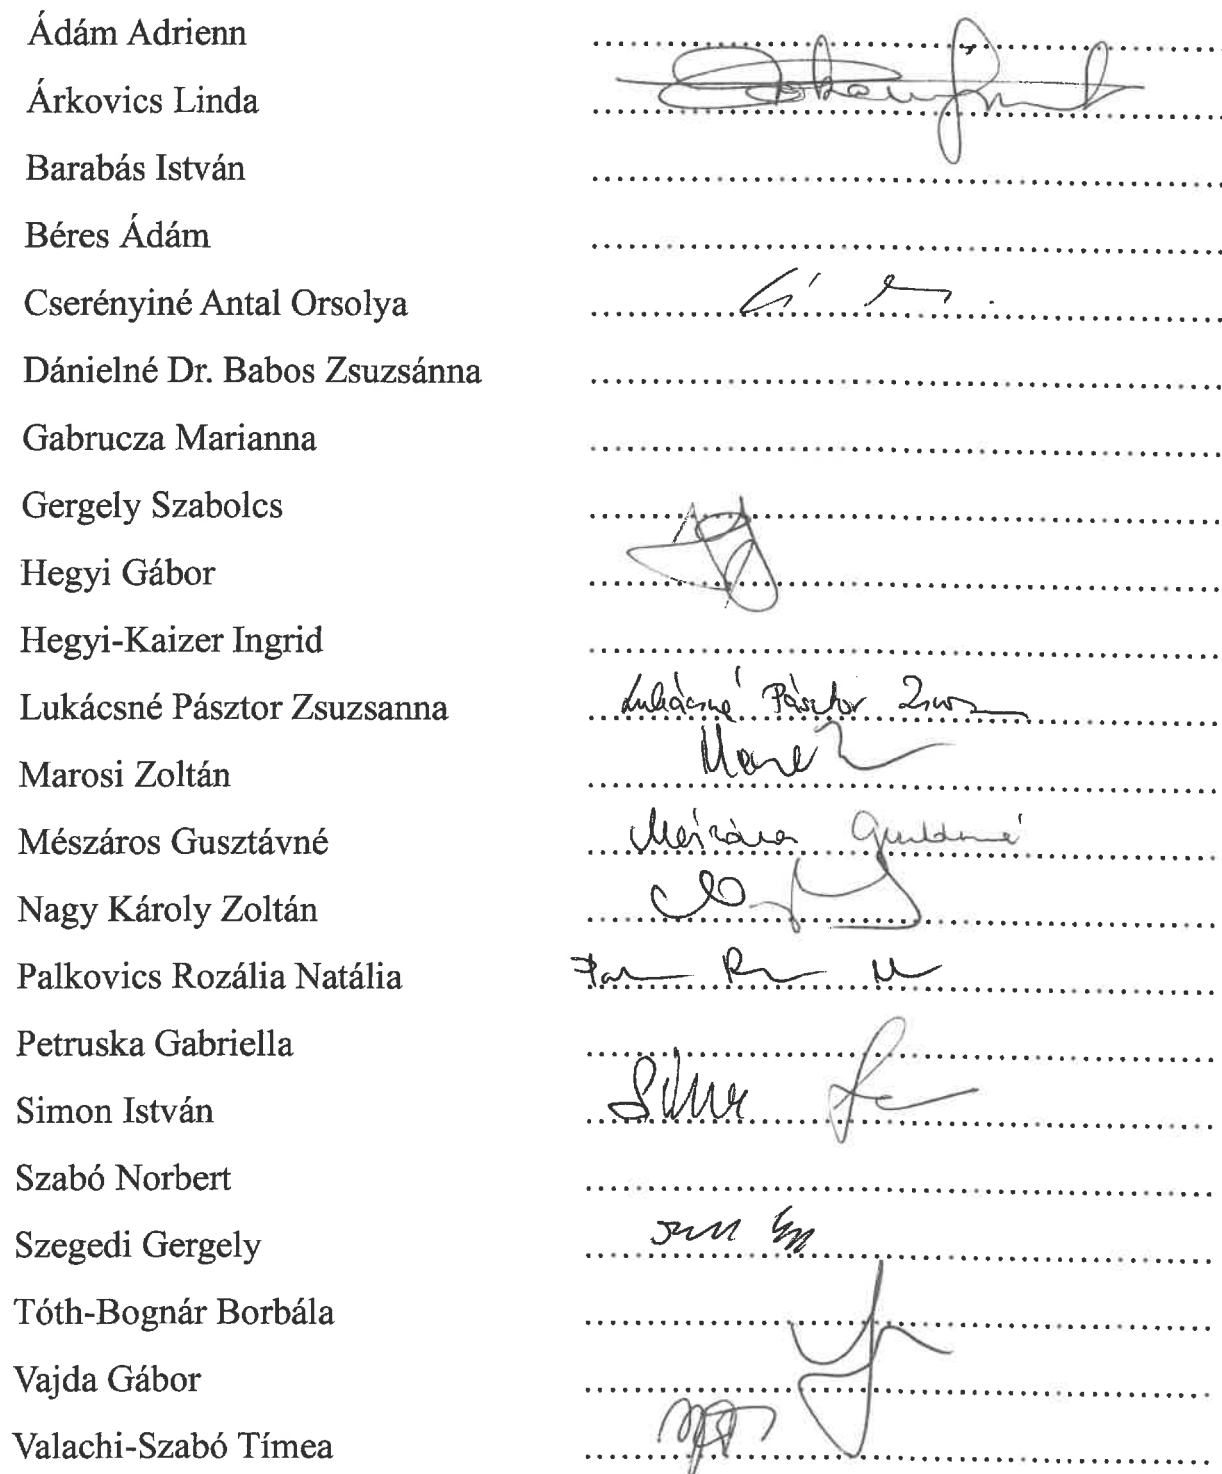 Ádám Adrienn
Árkovics Linda
Barabás István
Béres Ádám
Cserényiné Antal Orsolya
Dánielné Dr. Babos Zsuzsánna
Gabrucza Marianna
Gergely Szabolcs
Hegyi Gábor
Hegyi-Kaizer Ingrid
Lukácsné Pásztor Zsuzsanna Lukácsné Pásztor
Marosi Zoltán
Mészáros Gusztávné
Nagy Károly Zoltán
Palkovics Rozália Natália
Petruska Gabriella
Simon István
Szabó Norbert
Szegedi Gergely
Tóth-Bognár Borbála
Vajda Gábor
Valachi-Szabó Tímea